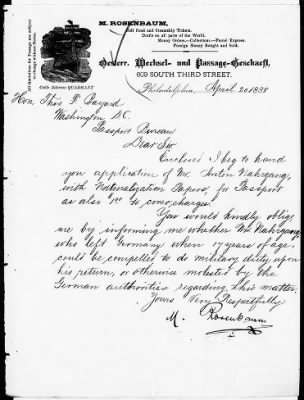 M. ROSENBAUM,
Rail Road and Steamship Tickets.
Drafts on all parts of the World.
Money Orders.-Collections.-Parcel Express.
Foreign Money Bought and Sold.
Oesterr. Wechsel- und Passage-Geschaeft,
609 SOUTH THIRD STREET,
Cable Address: QUADRANT
Philadelphia, April 20 1888
Hon. Thos F. Bayard
Washington D.C.
Passport Bureau
Dear Sir
Enclosed I beg to hand
you application of Mr. Anton Nahrgang,
with Naturalization Papers, for Passport
as also 1.00 to cover charges.
You would kindly oblige
me by informing me whether Mr Nahrgang
who left Germany when 17 years of age
could be compelled to do military duty upon
his return, or otherwise molested by the
German authorities regarding this matter.
Yours Very Respectfully
M. Rosenbaum